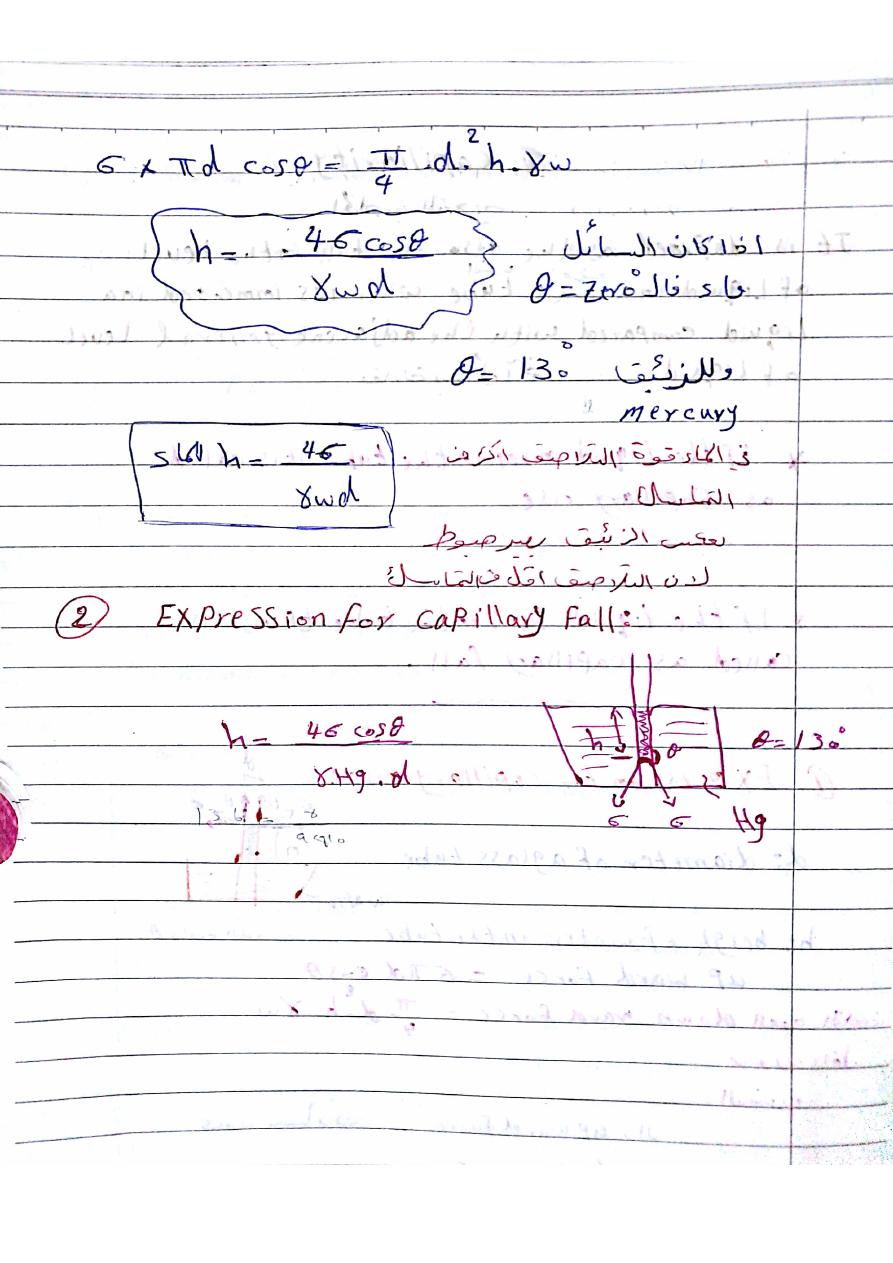 σ × πd cosθ = π/4 . d². h. γw
h = 4σ cosθ / γw d
اذا كان السائل
ماء فال θ = Zero°
وللزئبق θ = 130°
mercury
في الماء قوة التلاصق اكبر من
التماسك
للماء h = 4σ / γw d
بعكس الزئبق يصير هبوط
لان التلاصق اقل من التماسك
② Expression for capillary fall:
h = 4σ cosθ / γHg . d
h θ θ = 130°
σ σ Hg